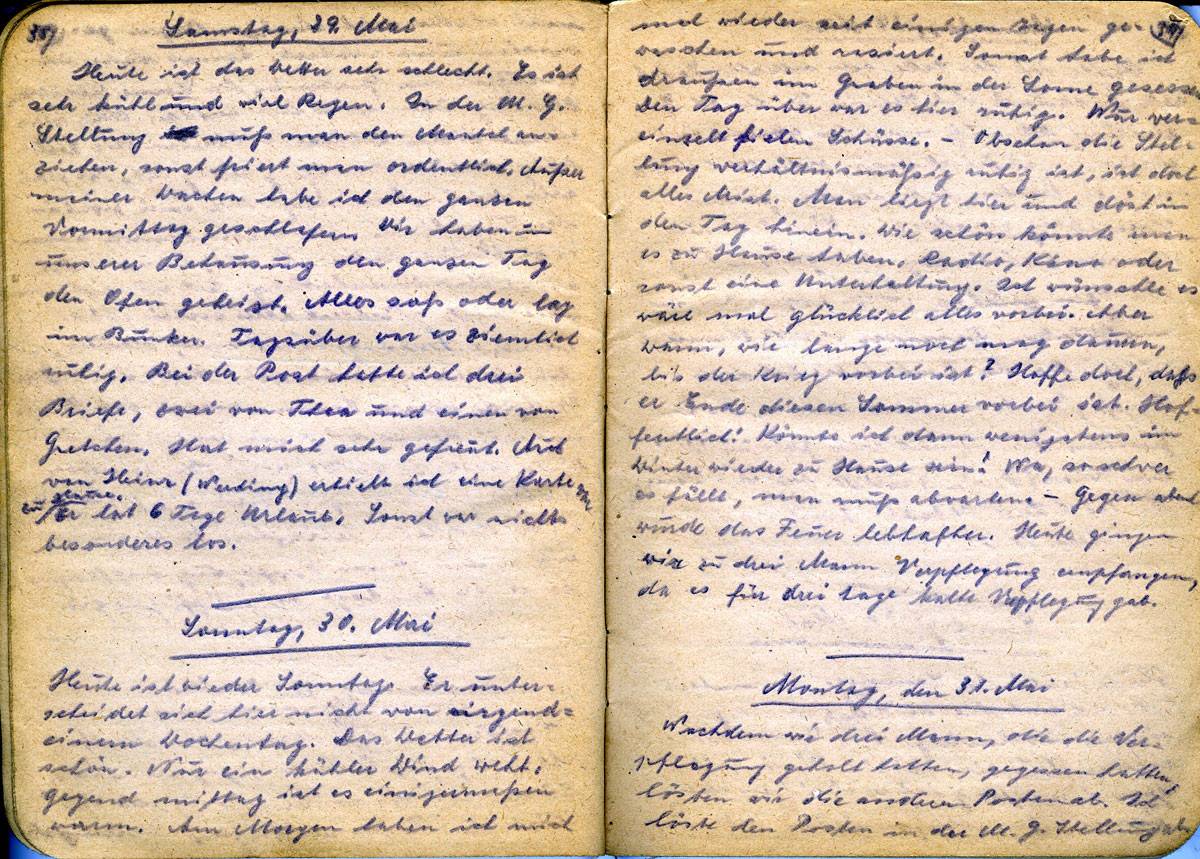 Samstag, 29. Mai
Heute ist das Wetter sehr schlecht. Es ist
sehr kühl und viel Regen. In der M. G.
Stellung muß man den Mantel an-
ziehen, sonst friert man ordentlich. Außer
meiner Wachen habe ich den ganzen
Vormittag geschlafen. Wir haben in
unserer Behausung den ganzen Tag
den Ofen geheizt. Alles saß oder lag
im Bunker. Tagsüber war es ziemlich
ruhig. Bei der Post hatte ich drei
Briefe, zwei von Thea und einen von
Gretchen. Hat mich sehr gefreut. Auch
von Heinz (Werding) erhielt ich eine Karte von
zu Hause.
Er hat 6 Tage Urlaub. Sonst war nichts
besonderes los.
Sonntag, 30. Mai
Heute ist wieder Sonntag. Er unter-
scheidet sich hier nicht von irgend=
einem Wochentag. Das Wetter ist
schön. Nur ein kühler Wind weht,
gegend mittag ist es einigermaßen
warm. Am Morgen haben ich mich
mal wieder seit einigen Tagen ge-
waschen und rasiert. Sonst habe ich
draußen im Graben in der Sonne gesessen
Den Tag über war es hier ruhig. Nur vers
einzelt fielen Schüsse. – Obschon die Stel-
lung verhältnismäßig ruhig ist, ist doch
alles Mist. Man liegt hier und döst in
den Tag hinein. Wie schön könnte man
es zu Hause haben. Radio, Kino oder
sonst eine Unterhaltung. Ich wünschte es
wäre mal glücklich alles vorbei. Aber
wann, wie lange noch mag dauern,
bis der Krieg vorbei ist? Hoffe doch, daß
er Ende diesen Sommer vorbei ist. Hof-
fentlich! Könnte ich dann wenigstens im
Winter wieder zu Hause sein! Na, so schwer
es fällt, man muß abwarten. – Gegen abend
wurde das Feuer lebhafter. Heute gingen
wir zu drei Mann Verpflegung empfangen,
da es für drei Tage kalte Verpflegung gab.
Montag, den 31. Mai
Nachdem wir drei Mann, die die Ver-
pflegung geholt hatten, gegessen hatten,
lösten wir die anderen Posten ab. Ich
löste den Posten in der M. G. Stellung ab.